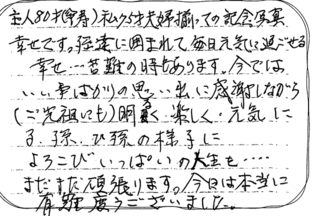 主人80才(傘寿)私76才夫婦揃っての記念写真
幸せです。孫達に囲まれて毎日元気に過ごせる
幸せ…苦難の時もあります。今では
いい事ばかりの思い出に感謝しながら
(ご先祖にも)明るく楽しく元気に
る孫、ひ孫の様子に
よろこびいっぱいの人生を‥‥
まだまだ頑張ります。今日は本当に
有難度うございました。